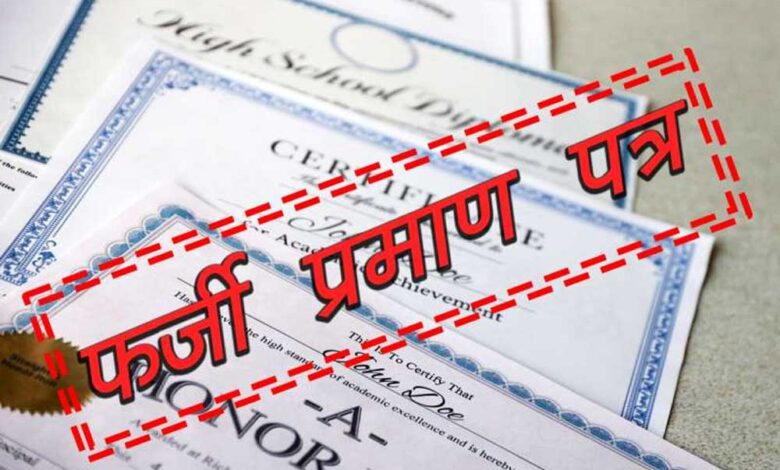 High School Diploma
CERTIFICATE
John Doe
for Academic Achievement
फर्जी प्रमाण पत्र
This Is To Certify That
John Doe
high standard of academic excellence and is hereby
-A-
HONOR
Awarded at